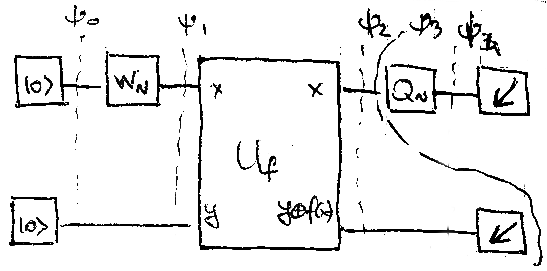 ψ₀ ψ₁ ψ₂ ψ₃ ψ₄
|0⟩ W_N x x Q_N
U_f
|0⟩ y y⊕f(x)